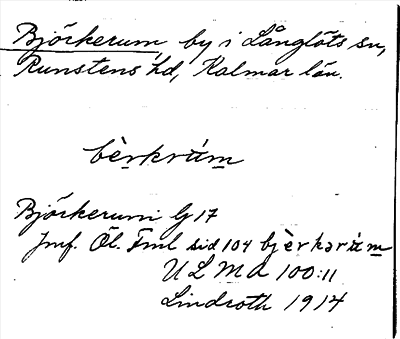 Björkerum, by i Långlöts sn,
Runstens hd, Kalmar län.
bèrkrúm
Björkerum G 17
Jmf. Öl. Fml sid 104 bjèrkərúm
ULMA 100:11
Lindroth 1914